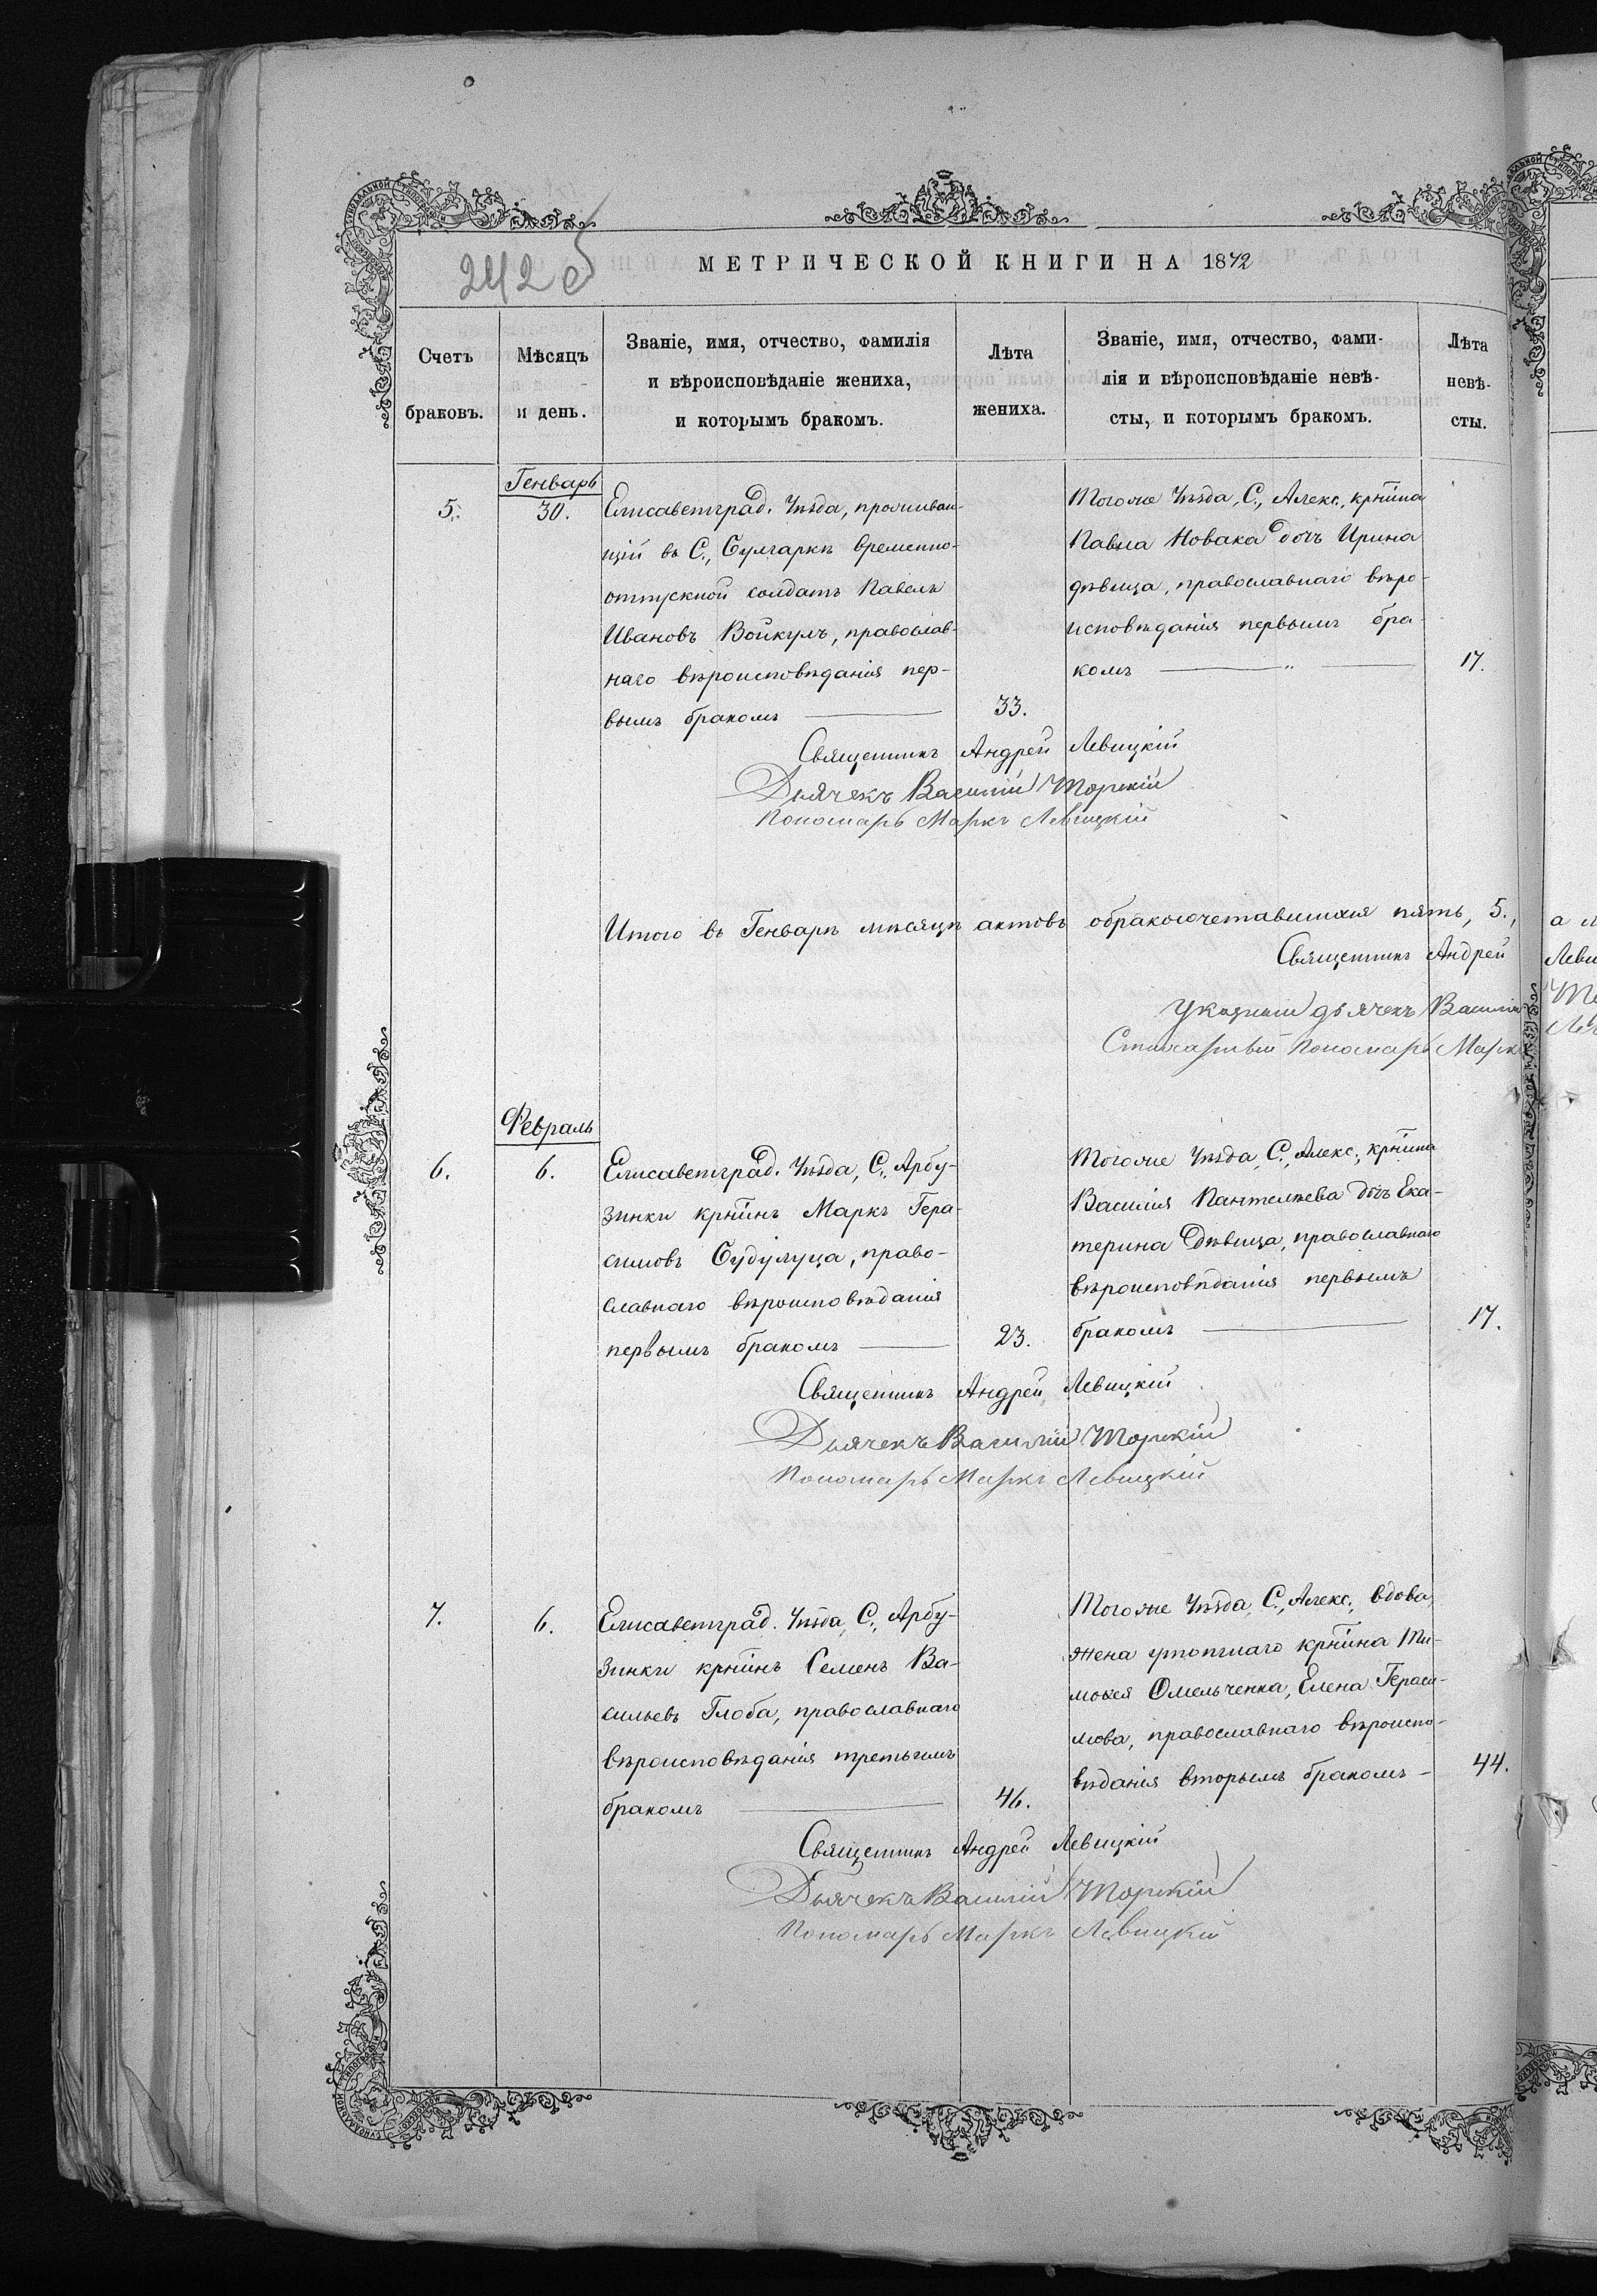 242 об
МЕТРИЧЕСКОЙ КНИГИ НА 1872
Счетъ браковъ.
Мѣсяцъ и день.
Званіе, имя, отчество, фамилія
и вѣроисповѣданіе жениха,
и которымъ бракомъ.
Лѣта
жениха.
Званіе, имя, отчество, фами-
лія и вѣроисповѣданіе невѣ-
сты, и которымъ бракомъ.
Лѣта
невѣ-
сты.
Генварь
5.
30.
Елисаветград. Уѣзда, проживаю-
щій въ С., Булгаркѣ временно-
отпускной солдатъ Павелъ
Ивановъ Войкулъ, православ-
наго вѣроисповѣданія пер-
вымъ бракомъ
33.
Тогоже Уѣзда, С., Алекс., крѣина
Павла Новака дочь Ирина
дѣвица, православнаго вѣро-
исповѣданія первымъ бра-
комъ
17.
Священникъ Андрей Левицкій
Дьячекъ Василій Торскій
Пономарь Маркъ Левицкій
Итого въ Генварѣ мѣсяцѣ актовъ обракосочетавшихся пять, 5.,
Священникъ Андрей
Указный дьячекъ Василій
Стихарный Пономарь Маркъ
Февраль
6.
6.
Елисаветград. Уѣзда, С., Арбу-
зинки крѣинъ Маркъ Гера-
симовъ Будулуца, право-
славнаго вѣроисповѣданія
первымъ бракомъ
23.
Тогоже Уѣзда, С., Алекс., крѣина
Василія Пантелѣева дочь Ека-
терина дѣвица, православнаго
вѣроисповѣданія первымъ
бракомъ
17.
Священникъ Андрей Левицкій
Дьячекъ Василій Торскій
Пономарь Маркъ Левицкій
7.
6.
Елисаветград. Уѣзда, С., Арбу-
зинки крѣинъ Семенъ Ва-
сильевъ Глоба, православнаго
вѣроисповѣданія третьимъ
бракомъ
46.
Тогоже Уѣзда, С., Алекс., вдова,
жена умершаго крѣина Ти-
моѳея Омельченка, Елена Гераси-
мова, православнаго вѣроиспо-
вѣданія вторымъ бракомъ
44.
Священникъ Андрей Левицкій
Дьячекъ Василій Торскій
Пономарь Маркъ Левицкій